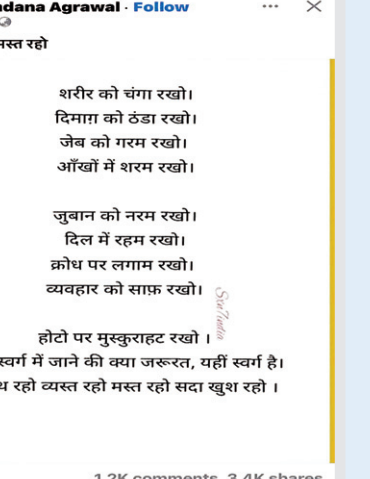 dana Agrawal · Follow
मस्त रहो
शरीर को चंगा रखो।
दिमाग़ को ठंडा रखो।
जेब को गरम रखो।
आँखों में शरम रखो।
जुबान को नरम रखो।
दिल में रहम रखो।
क्रोध पर लगाम रखो।
व्यवहार को साफ़ रखो।
होटो पर मुस्कुराहट रखो ।
स्वर्ग में जाने की क्या जरूरत, यहीं स्वर्ग है।
रहो व्यस्त रहो मस्त रहो सदा खुश रहो ।
1.2K comments 3.4K shares